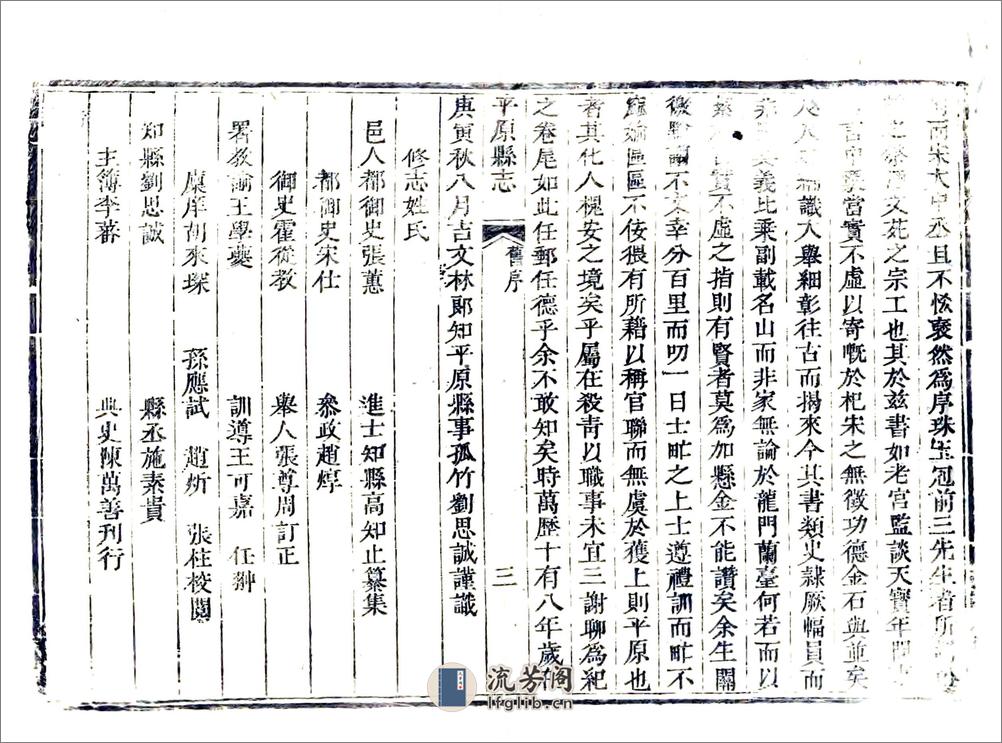 而宋大中丞且不惔裒然爲序珠玉冠前三先生者所
文苑之宗工也其於兹書如老宫監談天寶年間
當實不虛以寄嘅於杞宋之無徵功德金石與並矣
識大舉細彰往古而揭來今其書類史隸厥幅員而
義比乘副載名山而非家無論於龍門蘭臺何若而以
實不虛之指則有賢者莫爲加懸金不能讚矣余生關
不文幸分百里而叨一日士甿之上士遵禮訓而甿不
區區不佞猥有所藉以稱官聯而無虞於獲上則平原也
者其化人槐安之境矣乎屬在殺青以職事未宜三謝聊爲紀
之卷尾如此任郵任德乎余不敢知矣時萬歷十有八年歲在
平原縣志
舊序
三
庚寅秋八月吉文林郞知平原縣事孤竹劉思誠謹識
修志姓氏
邑人都御史張蕙 進士知縣高知止纂集
都御史宋仕 叅政趙焞
御史霍從敎 舉人張尊周訂正
署敎諭王學夔 訓導王可嘉 任翀
廩庠胡來琛 孫應試 趙炘 張柱校閱
知縣劉思誠 縣丞施素貴
主簿李蕃 典史陳萬善刊行
流芳阁
lfglib.cn